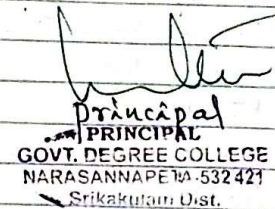 Principal
PRINCIPAL
GOVT. DEGREE COLLEGE
NARASANNAPETA-532 421
Srikakulam Dist.